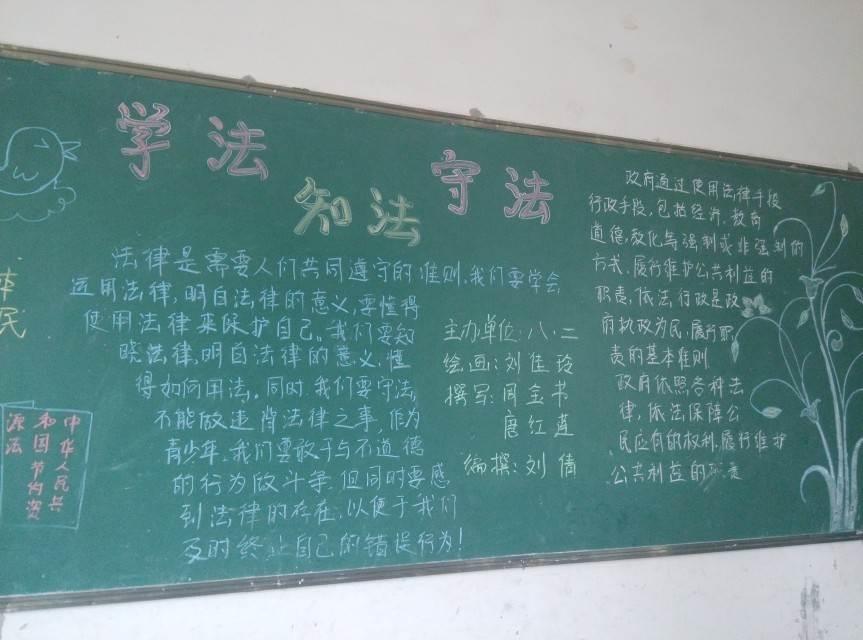 学法
知法
守法
法律是需要人们共同遵守的准则,我们要学会
运用法律,明白法律的意义,要懂得
使用法律来保护自己。我们要知
晓法律,明白法律的意义,懂
得如何用法。同时,我们要守法,
不能做违背法律之事,作为
青少年,我们要敢于与不道德
的行为做斗争.但同时要感
到法律的存在,以便于我们
及时终止自己的错误行为!
主办单位:八.二
绘画:刘佳玲
撰写:周金书
唐红莲
编撰:刘倩
政府通过使用法律手段
行政手段,包括经济,教育
道德,教化等强制或非强制的
方式,履行维护公共利益的
职责,依法行政是政
府执政为民,履行职
责的基本准则
政府依照各种法
律,依法保障公
民应有的权利,履行维护
公共利益的职责
民
中华人民共
和国节约资
源法